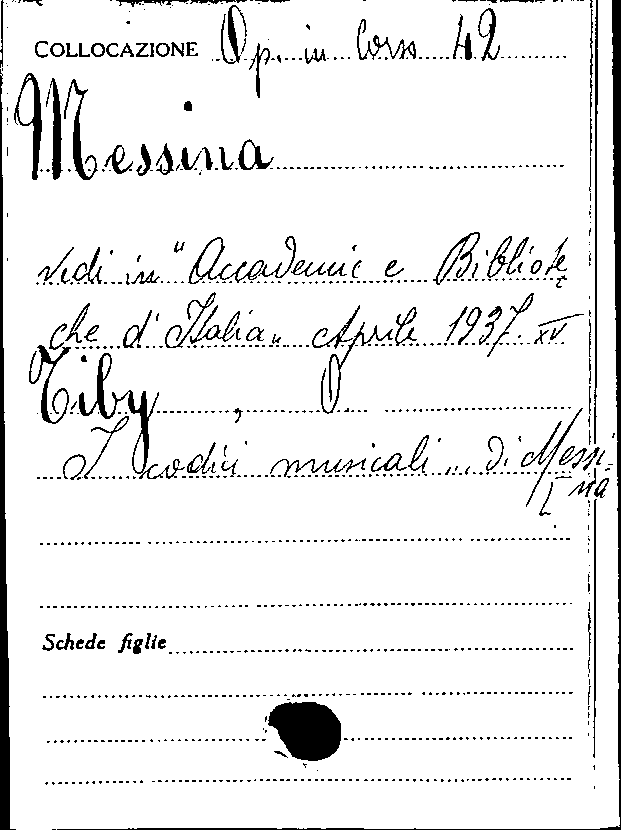 COLLOCAZIONE Op. in Corso 42
Messina
vedi in "Accademie e Bibliote
che d'Italia" Aprile 1937. XV
Tiby, O.
I codici musicali... di Messi-
na
Schede figlie